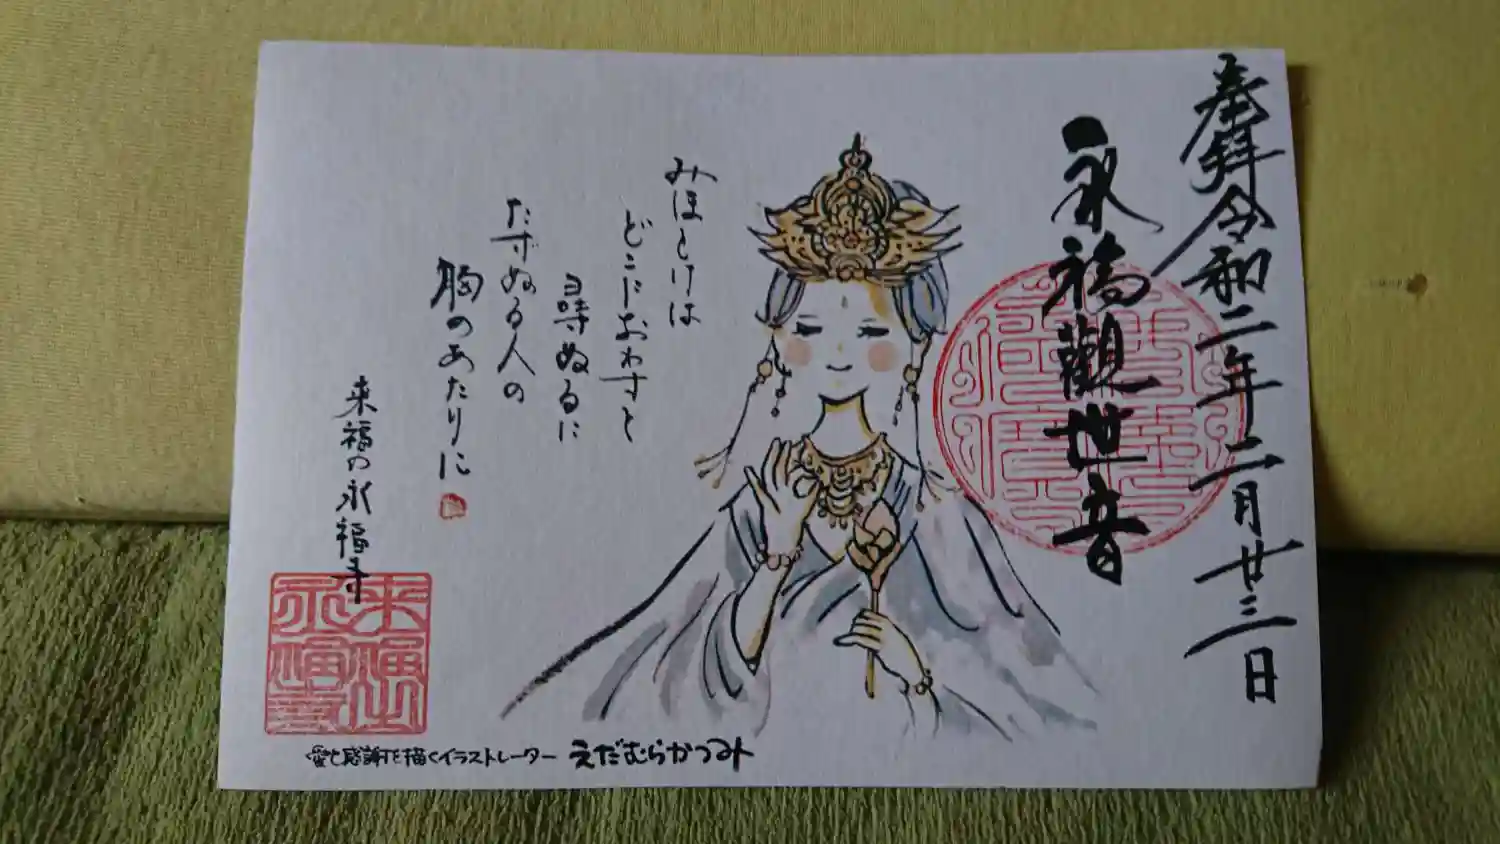 奉拝 令和二年二月廿三日
永福觀世音
みほとけは
どこにおわすと
尋ぬるに
たずぬる人の
胸のあたりに
来福の永福寺
愛と感謝を描くイラストレーター えだむらかつみ